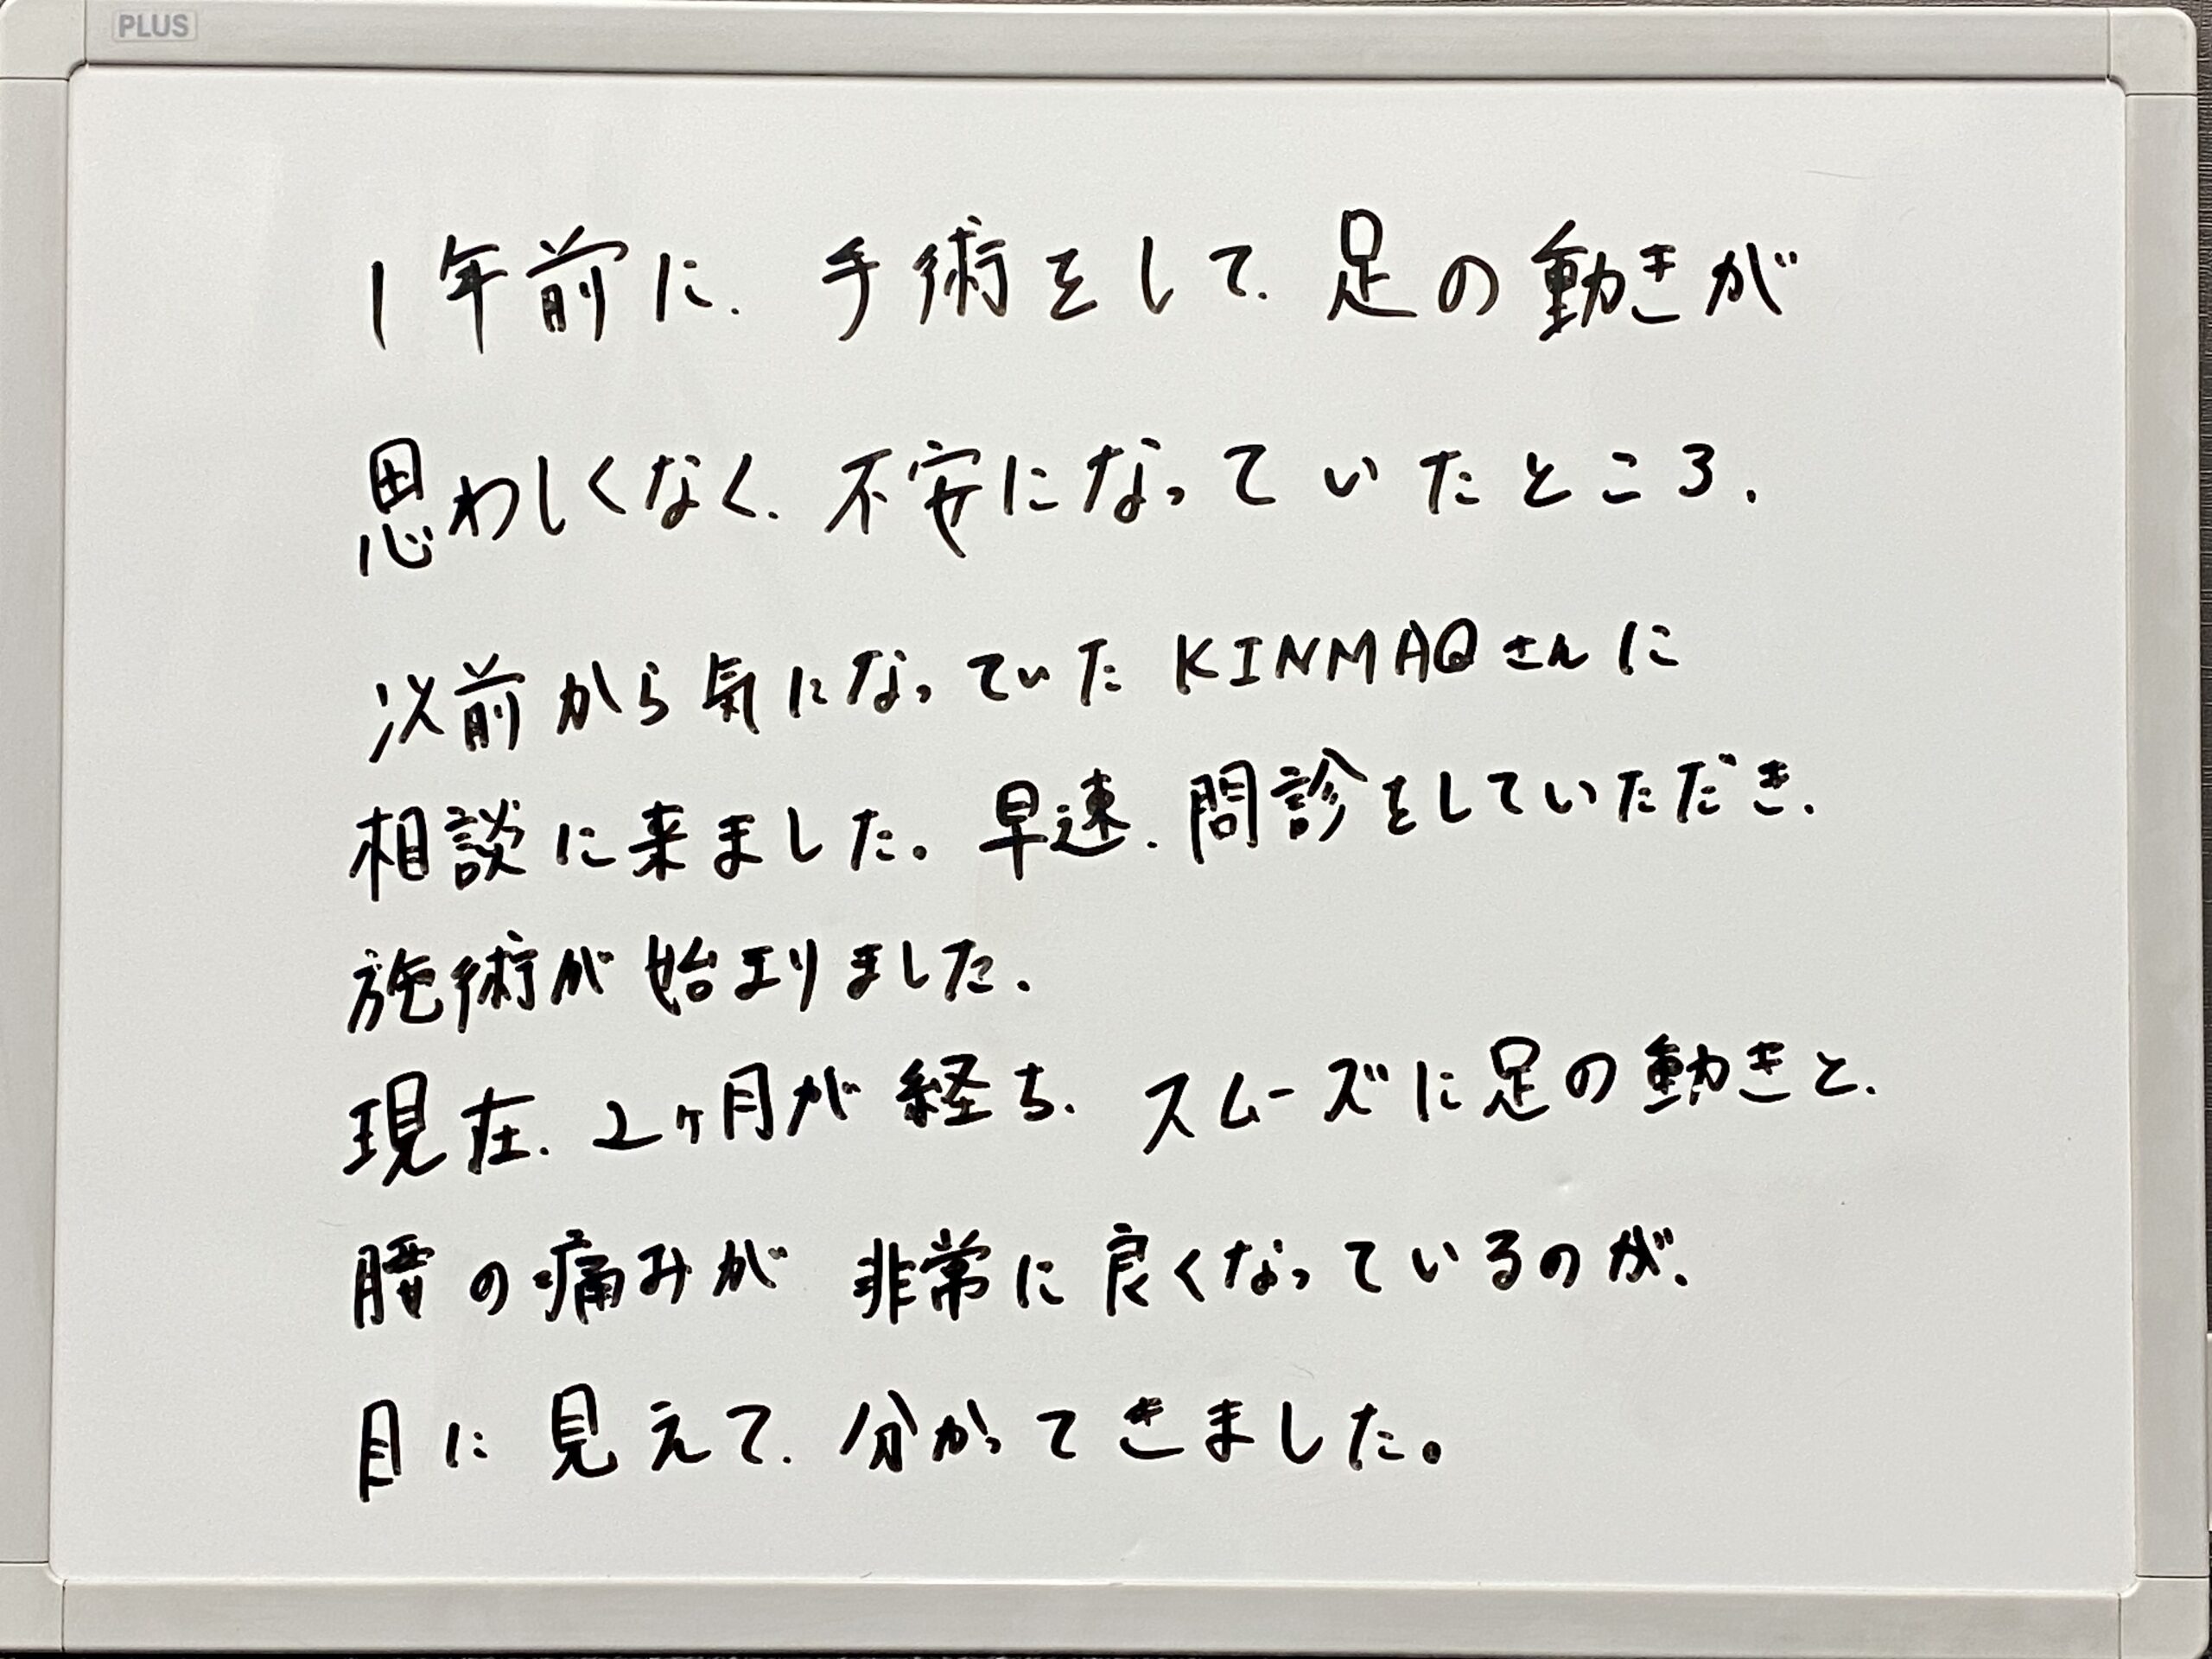 PLUS
1年前に、手術をして、足の動きが
思わしくなく、不安になっていたところ、
以前から気になっていたKINMAQさんに
相談に来ました。早速、問診をしていただき、
施術が始まりました。
現在、2ヶ月が経ち、スムーズに足の動きと、
腰の痛みが 非常に良くなっているのが、
目に見えて、分かってきました。